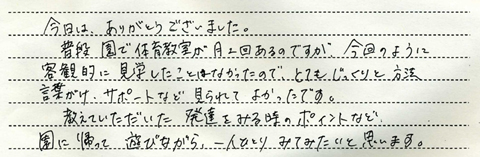 今日は、ありがとうございました。
普段 園で体育教室が月2回あるのですが、今回のように
客観的に見学したことはなかったので、とてもじっくりと方法
言葉がけ、サポートなど 見られて よかったです。
教えていただいた 発達をみる時のポイントなど、
園に帰って 遊びながら、一人ひとり みてみたいと思います。